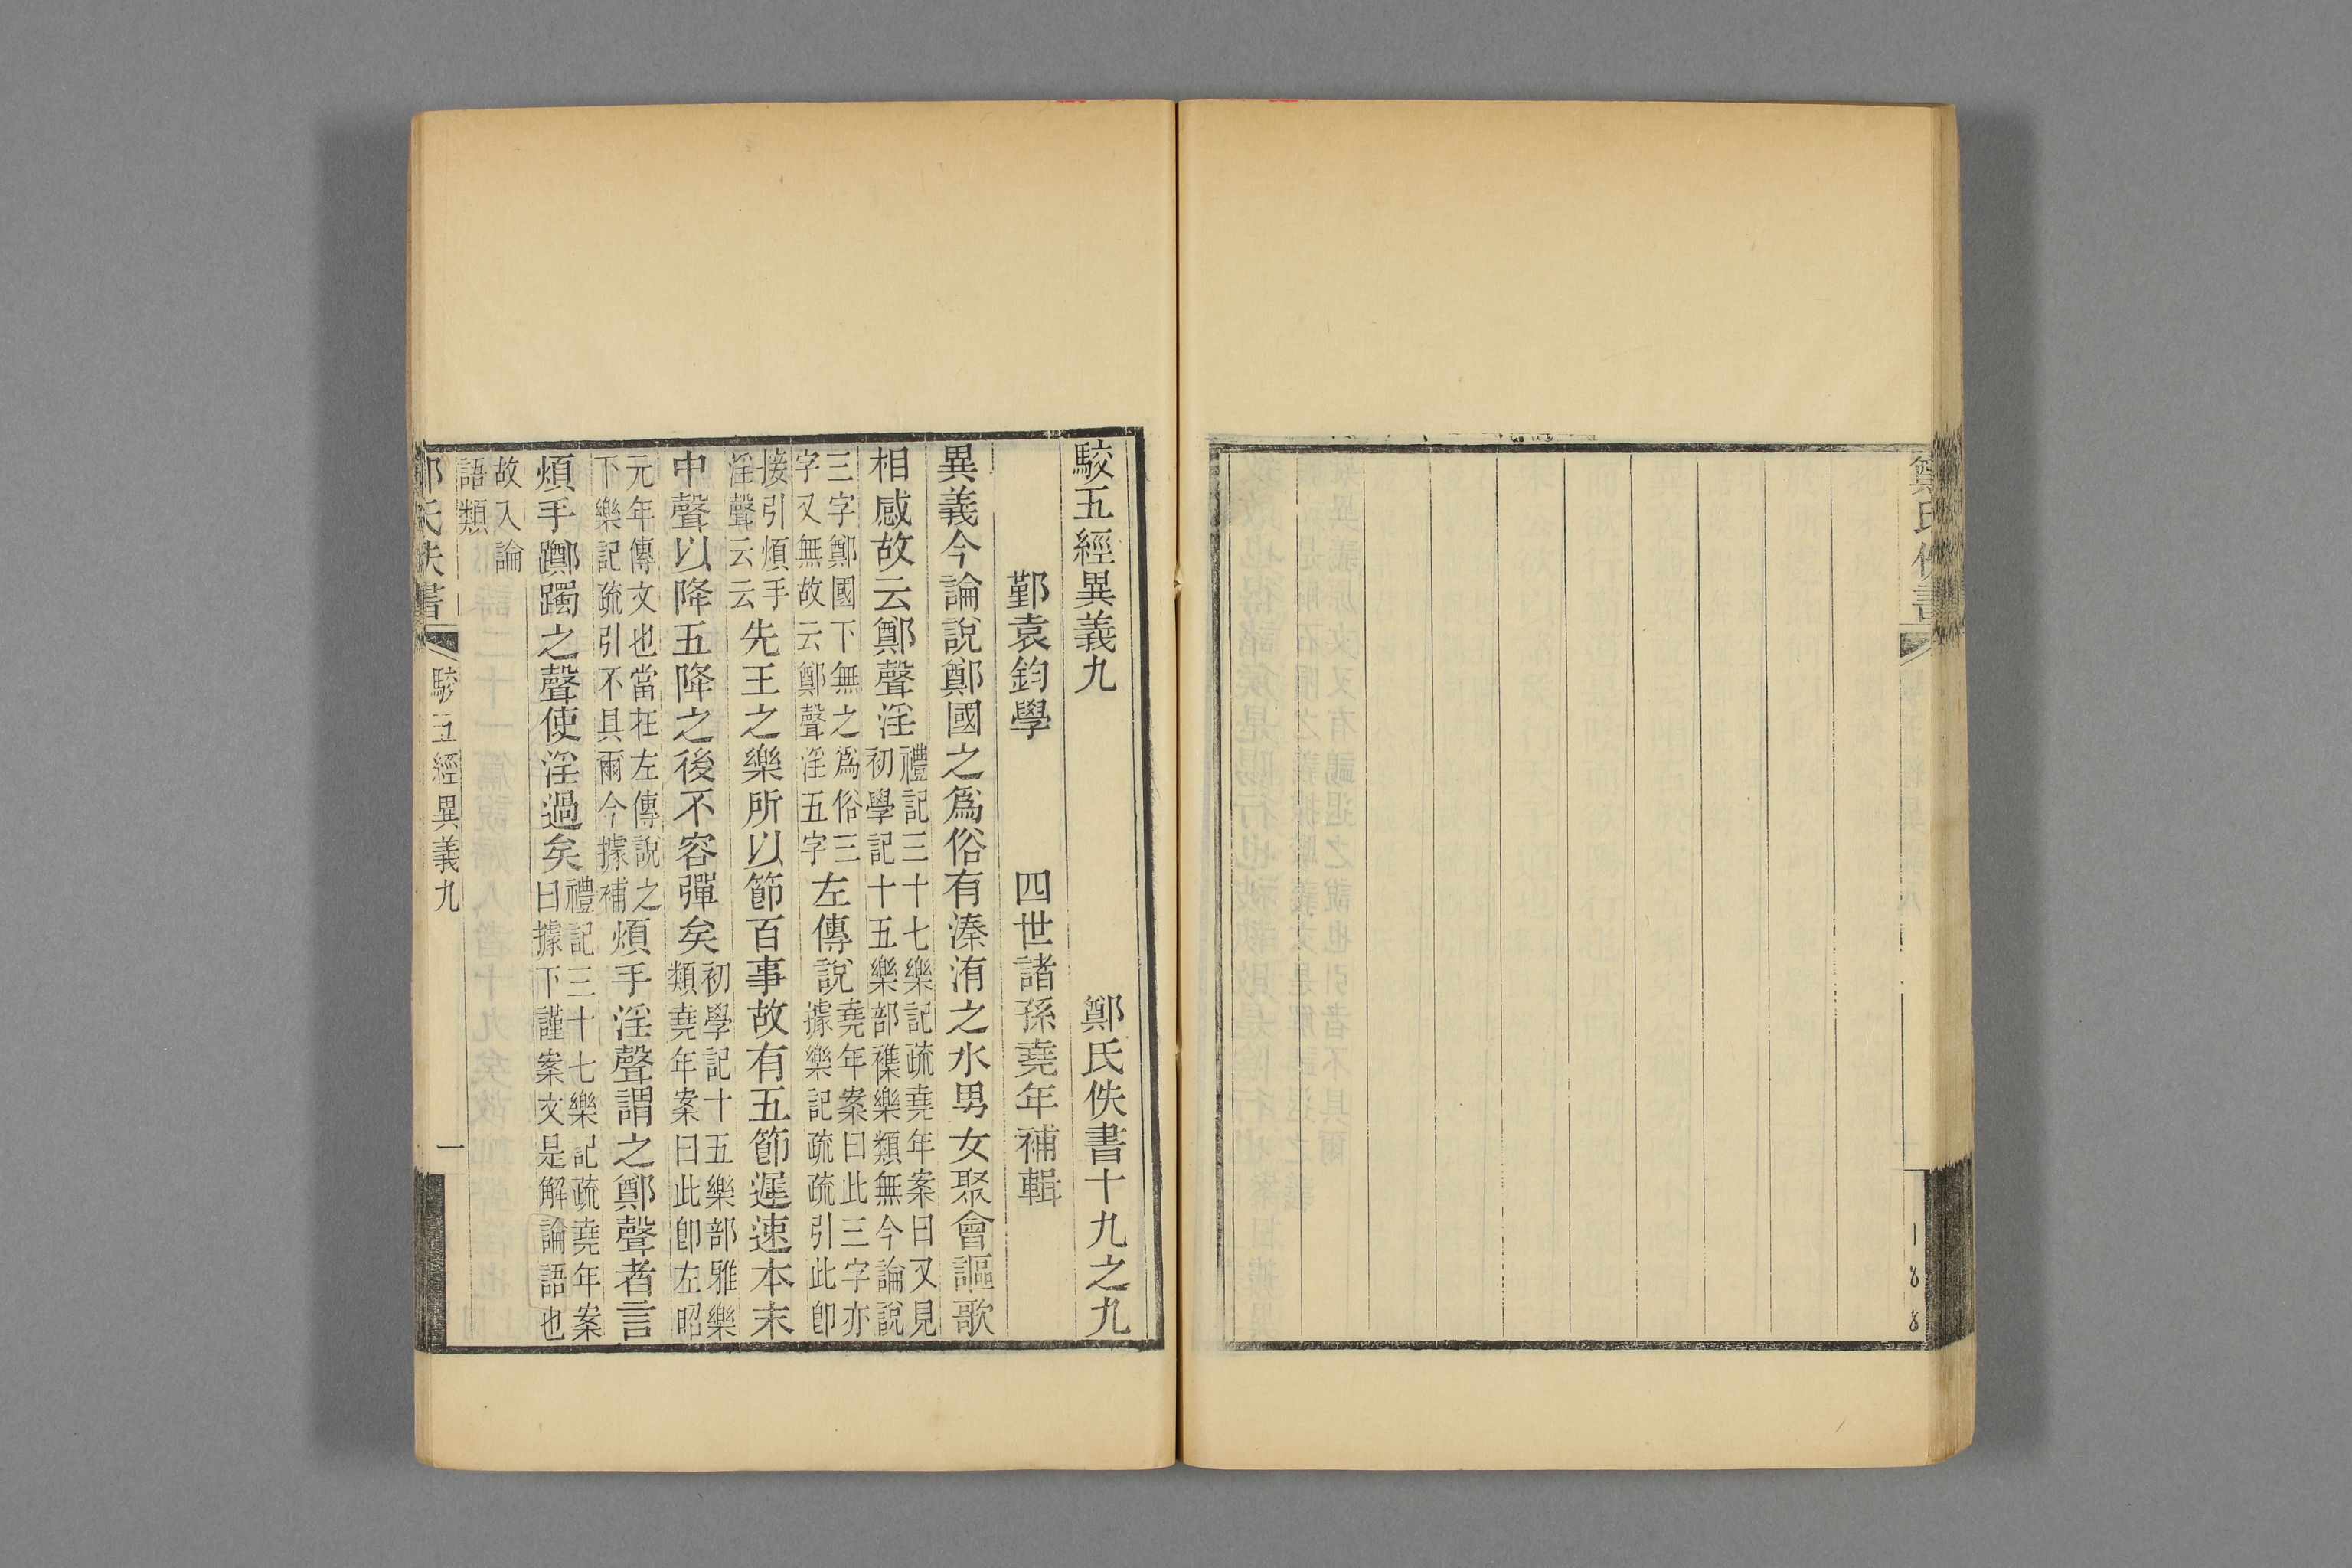 鄭氏佚書
駮五經異義九　鄭氏佚書十九之九
鄞袁鈞學　四世諸孫堯年補輯
異義今論說鄭國之爲俗有溱洧之水男女聚會謳歌
相感故云鄭聲淫禮記三十七樂記疏堯年案曰又見初學記十五樂部襍樂類無今論說
三字鄭國下無之爲俗三字又無故云鄭聲淫五字左傳說堯年案曰此三字亦據樂記疏疏引此卽
接引煩手淫聲云云先王之樂所以節百事故有五節遲速本末
中聲以降五降之後不容彈矣初學記十五樂部雅樂類堯年案曰此卽左昭
元年傳文也當在左傳說之下樂記疏引不具爾今據補煩手淫聲謂之鄭聲者言
煩手躑躅之聲使淫過矣禮記三十七樂記疏堯年案曰據下謹案文是解論語也
故入論語類
鄭氏佚書　駮五經異義九　一